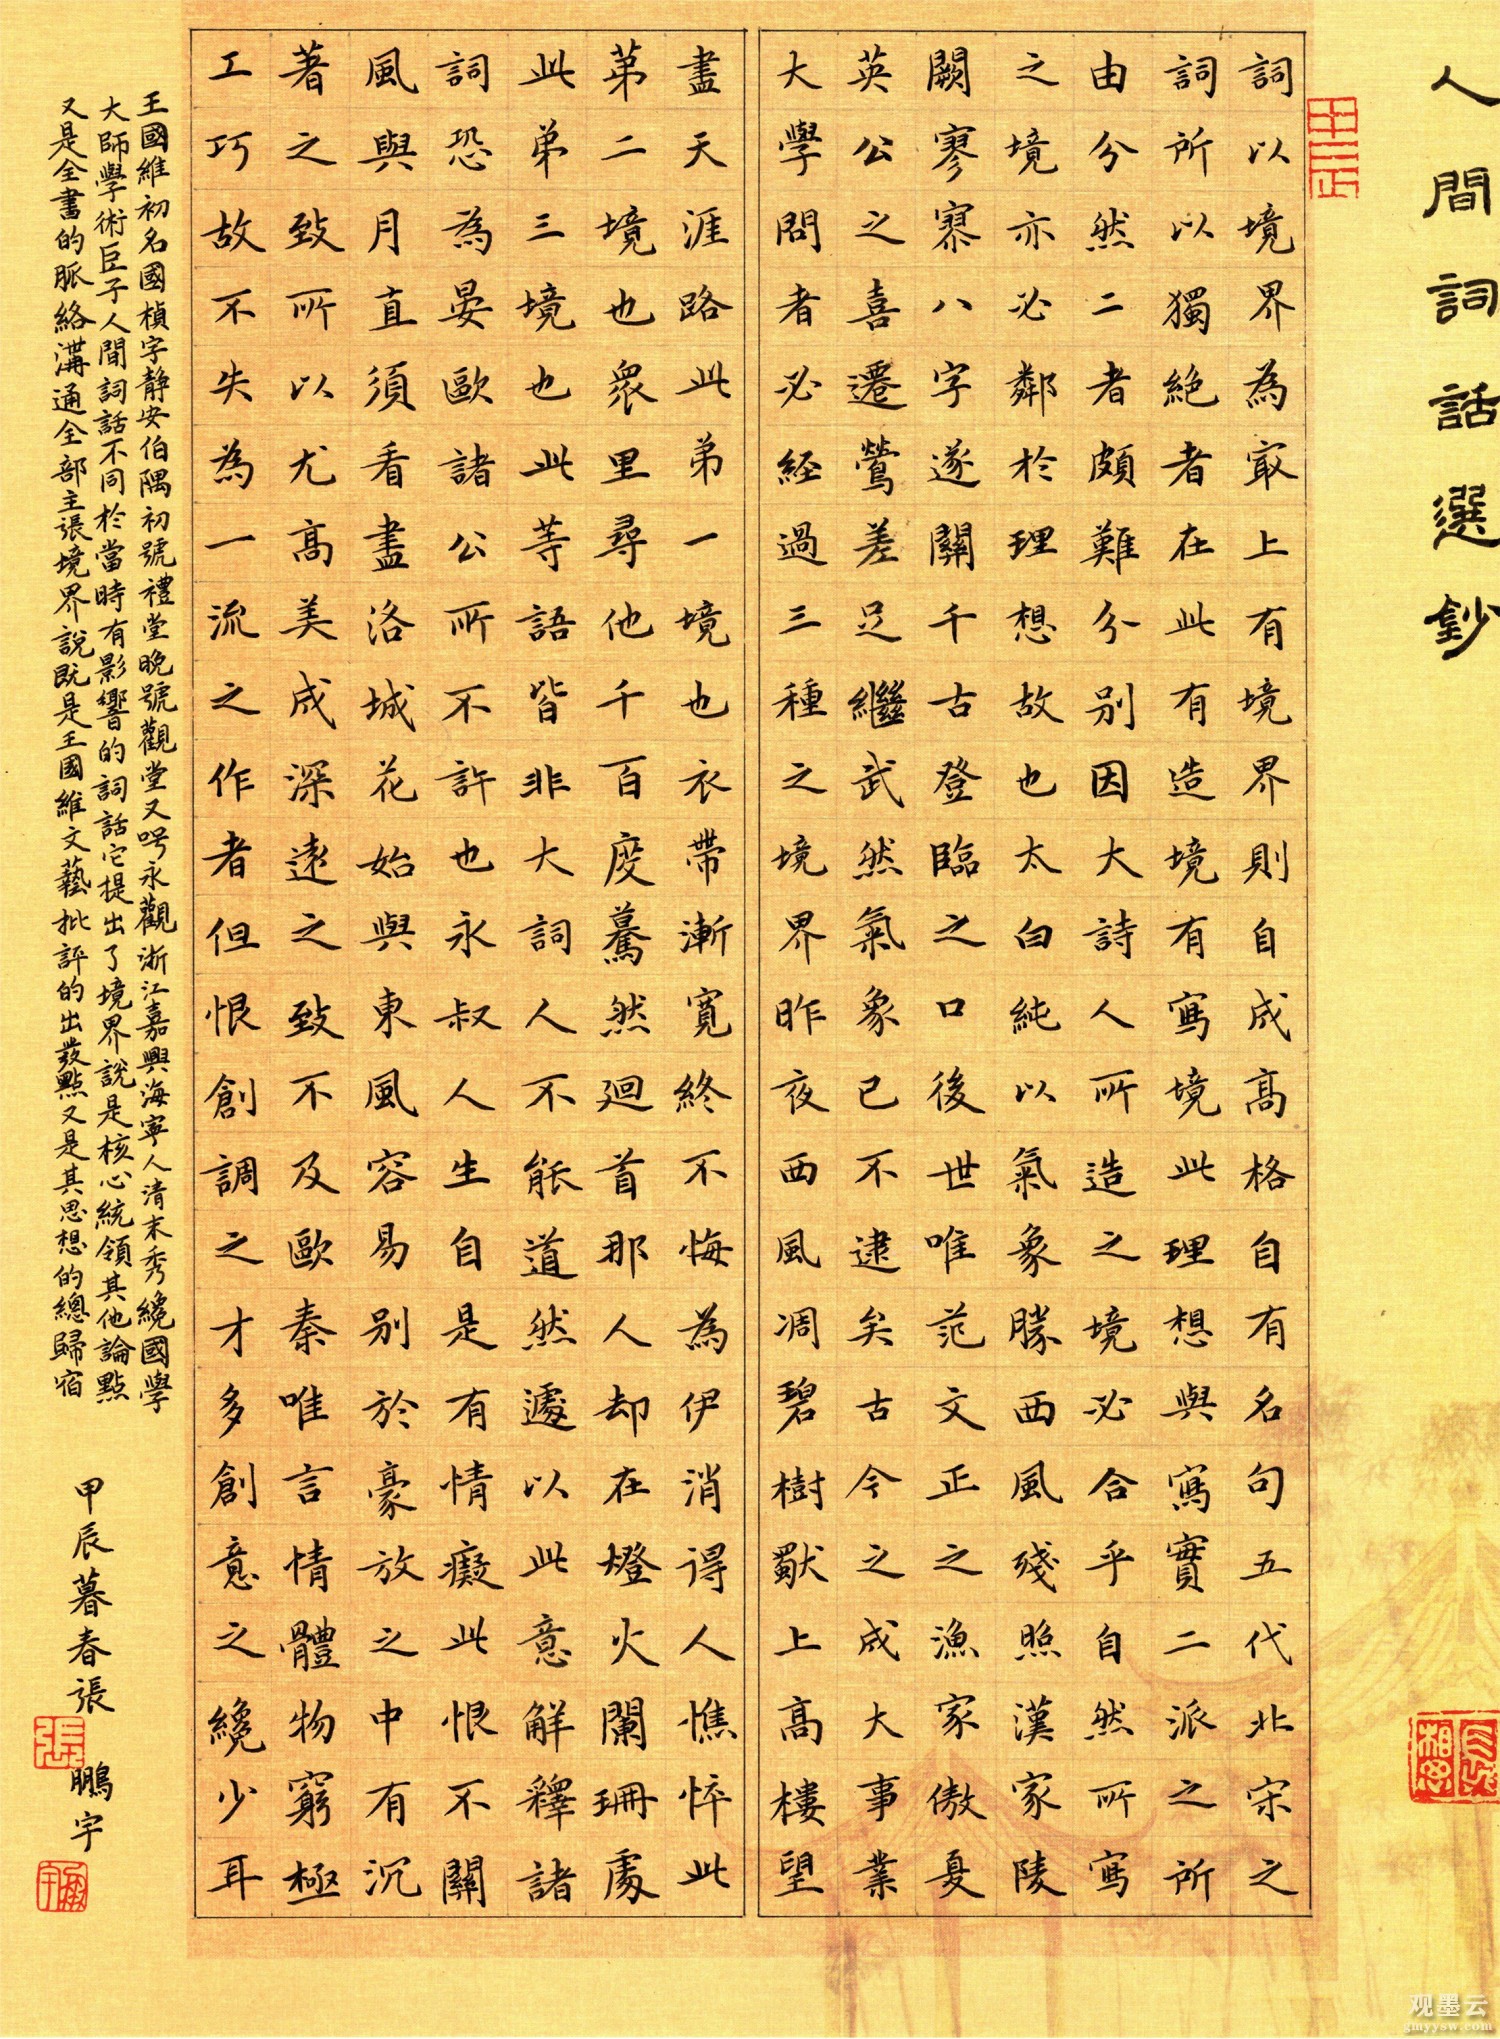 人間詞話選鈔
詞以境界為最上有境界則自成高格自有名句五代北宋之
詞所以獨絕者在此有造境有寫境此理想與寫實二派之所
由分然二者頗難分别因大詩人所造之境必合乎自然所寫
之境亦必鄰於理想故也太白純以氣象勝西風殘照漢家陵
闕寥寥八字遂關千古登臨之口後世唯范文正之漁家傲夏
英公之喜遷鶯差足繼武然氣象已不逮矣古今之成大事業
大學問者必經過三種之境界昨夜西風凋碧樹獨上高樓望
盡天涯路此第一境也衣帶漸寬終不悔為伊消得人憔悴此
第二境也衆里尋他千百度驀然迴首那人却在燈火闌珊處
此第三境也此等語皆非大詞人不能道然遽以此意解釋諸
詞恐為晏歐諸公所不許也永叔人生自是有情癡此恨不關
風與月直須看盡洛城花始與東風容易别於豪放之中有沉
著之致所以尤高美成深遠之致不及歐秦唯言情體物窮極
工巧故不失為一流之作者但恨創調之才多創意之纔少耳
王國維初名國楨字静安伯隅初號禮堂晚號觀堂又号永觀浙江嘉興海寧人清末秀纔國學
大師學術巨子人間詞話不同於當時有影響的詞話它提出了境界說是核心統領其他論點
又是全書的脈絡溝通全部主張境界說既是王國維文藝批評的出發點又是其思想的總歸宿
甲辰暮春張鵬宇
观墨云
gmyysw.com